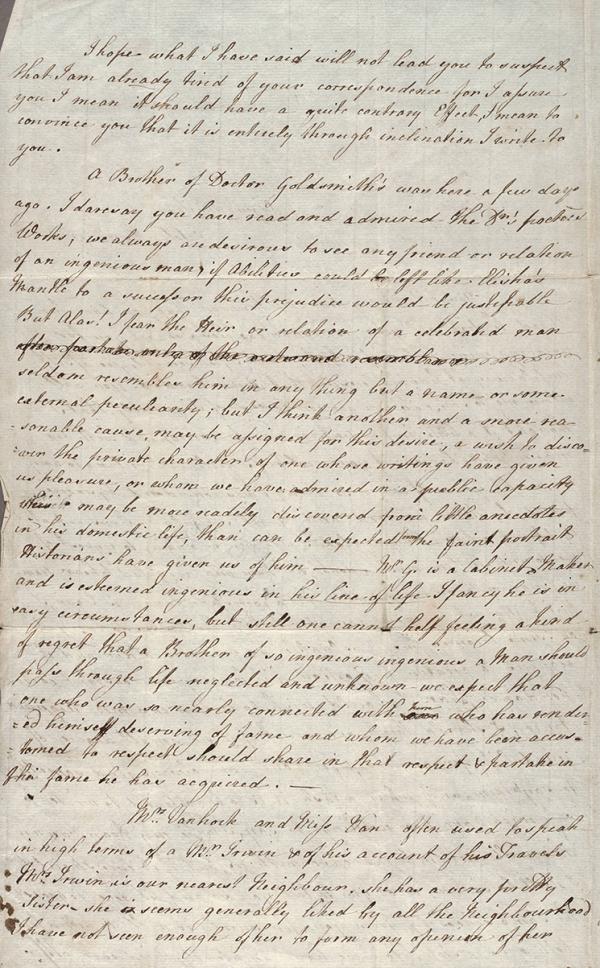 I hope what I have said will not lead you to suspect
that I am already tired of your correspondence for I assure
you I mean it should have a quite contrary Effect, I mean to
convince you that it is entirely through inclination I write to
you.
A Brother of Doctor Goldsmith's was here a few days
ago. I daresay you have read and admired the Dr's poetical
Works, we always are desirous to see any friend or relation
of an ingenious man, if Abilities could be left like Elisha's
Mantle to a successor this prejudice would be justifiable
But Alas! I fear the Heir or relation of a celebrated man
seldom resembles him in any thing but a name or some
external peculiarity; but I think another and a more rea-
=sonable cause, may be assigned for this desire, a wish to disco-
=ver the private character of one whose writings have given
us pleasure, or whom we have admired in a public capacity
this may be more readely discovered from little anecdotes
in his domestic life, than can be expected from the faint portrait
Historians have given us of him — Mr. G. is a Cabinet Maker
and is esteemed ingenious in his line of life I fancy he is in
easy circumstances, but still one cannot help feeling a kind
of regret that a Brother of so ingenious ingenious a Man should
pass through life neglected and unknown - we expect that
one who was so nearly connected with him who has render-
=ed himself deserving of fame and whom we have been accus-
=tomed to respect should share in that respect & partake in
the fame he has acquired. —
Mrs. Vanhock and Miss Van often used to speak
in high terms of a Mr. Irwin & of his account of his Travels
Mrs. Irwin is our nearest Neighbour. She has a very pretty
Sister - she is seems generally liked by all the Neighbourhood
I have not seen enough of her to form any opinion of her